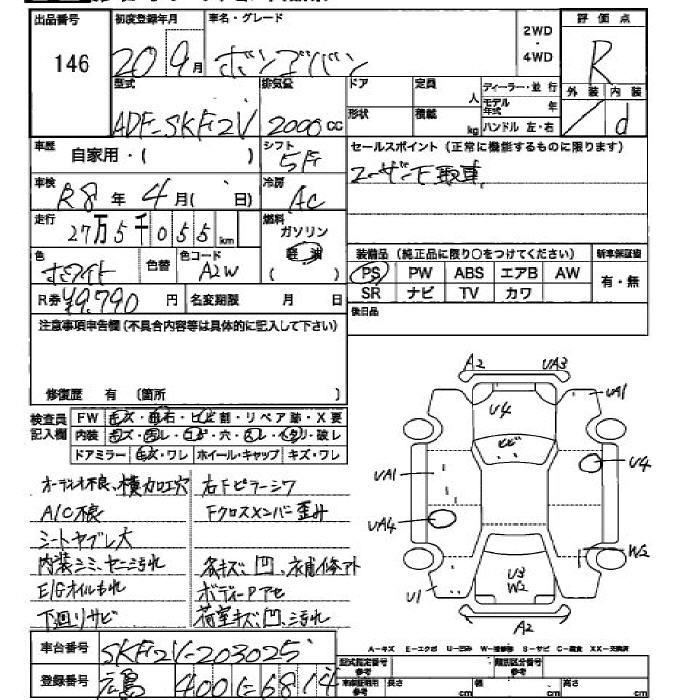 出品番号 初度登録年月 車名・グレード 2WD・4WD 評価点
146 20 9月 ボンゴバン R
型式 排気量 ドア 定員 人 ディーラー・並行 外装 内装
ADF-SKF2V 2000cc 形状 積載 kg モデル年式 年 ハンドル 左・右 / d
車歴 自家用・( ) シフト 5F セールスポイント(正常に機能するものに限ります)
車検 R8年 4月( 日) 冷房 AC ユーザー下取車
走行 27万5千055km 燃料 ガソリン 軽油 ( )
色 ホワイト 色替 色コード A2W 装備品(純正品に限り○をつけてください) 新車保証書
PS PW ABS エアB AW 有・無
R券 ¥9,790円 名変期限 月 日 SR ナビ TV カワ
注意事項申告欄(不具合内容等は具体的に記入して下さい) 後日品
修復歴 有 〔箇所 〕
検査員記入欄 FW キズ・飛石・ヒビ割・リペア跡・X要
内装 キズ・・コゲ・穴・・・破レ
ドアミラー キズ・ワレ ホイール・キャップ キズ・ワレ
A2 UA3
UA1
U4
ヒビ
UA1 U4
UA4
W2
U3
W2
U1
A2
オーディオ不良、横加工穴 右Fピラーシワ
A/C不良 Fクロスメンバー歪み
シートヤブレ大
内装シミ、ヤニ汚れ 各キズ、凹、補修アト
E/Gオイルもれ ボディーPアセ
下廻りサビ 荷室キズ凹、汚れ
A-キズ E-エクボ U-凹み W-補修跡 S-サビ C-腐食 XX-交換済
車台番号 SKF2V-203025 型式指定番号 参考 類別区分番号 参考
登録番号 広島 400 に 6814 車庫証明用 参考 長さ cm 幅 cm 高さ cm